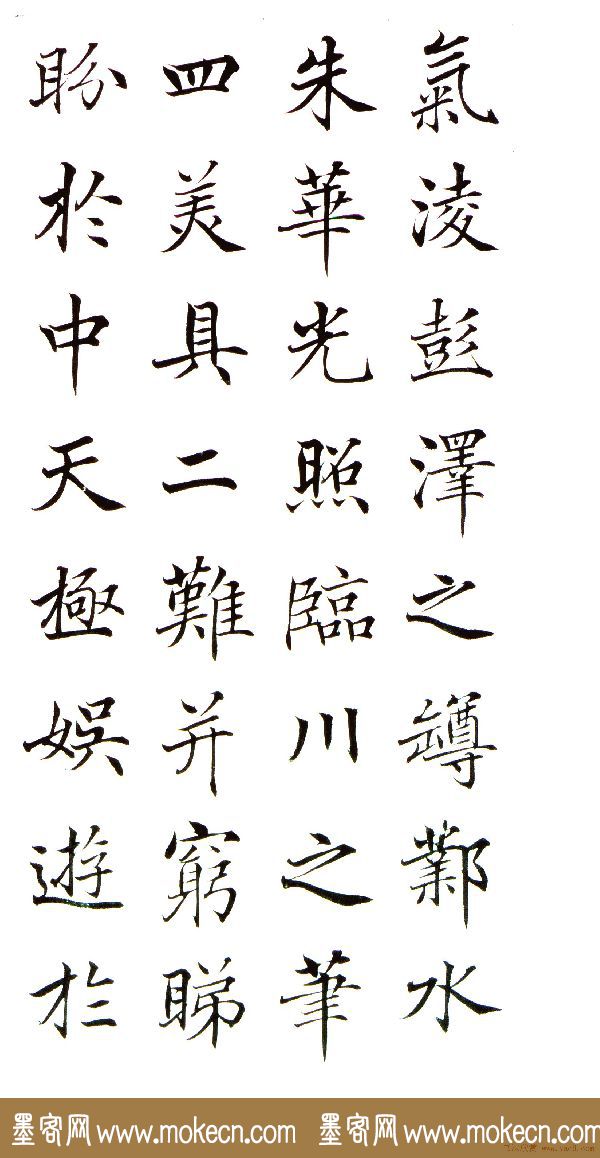 氣淩彭澤之罇鄴水
朱華光照臨川之筆
四美具二難并窮睇
眄於中天極娛遊於
墨客网 www.mokecn.com 墨客网 www.mokecn.com